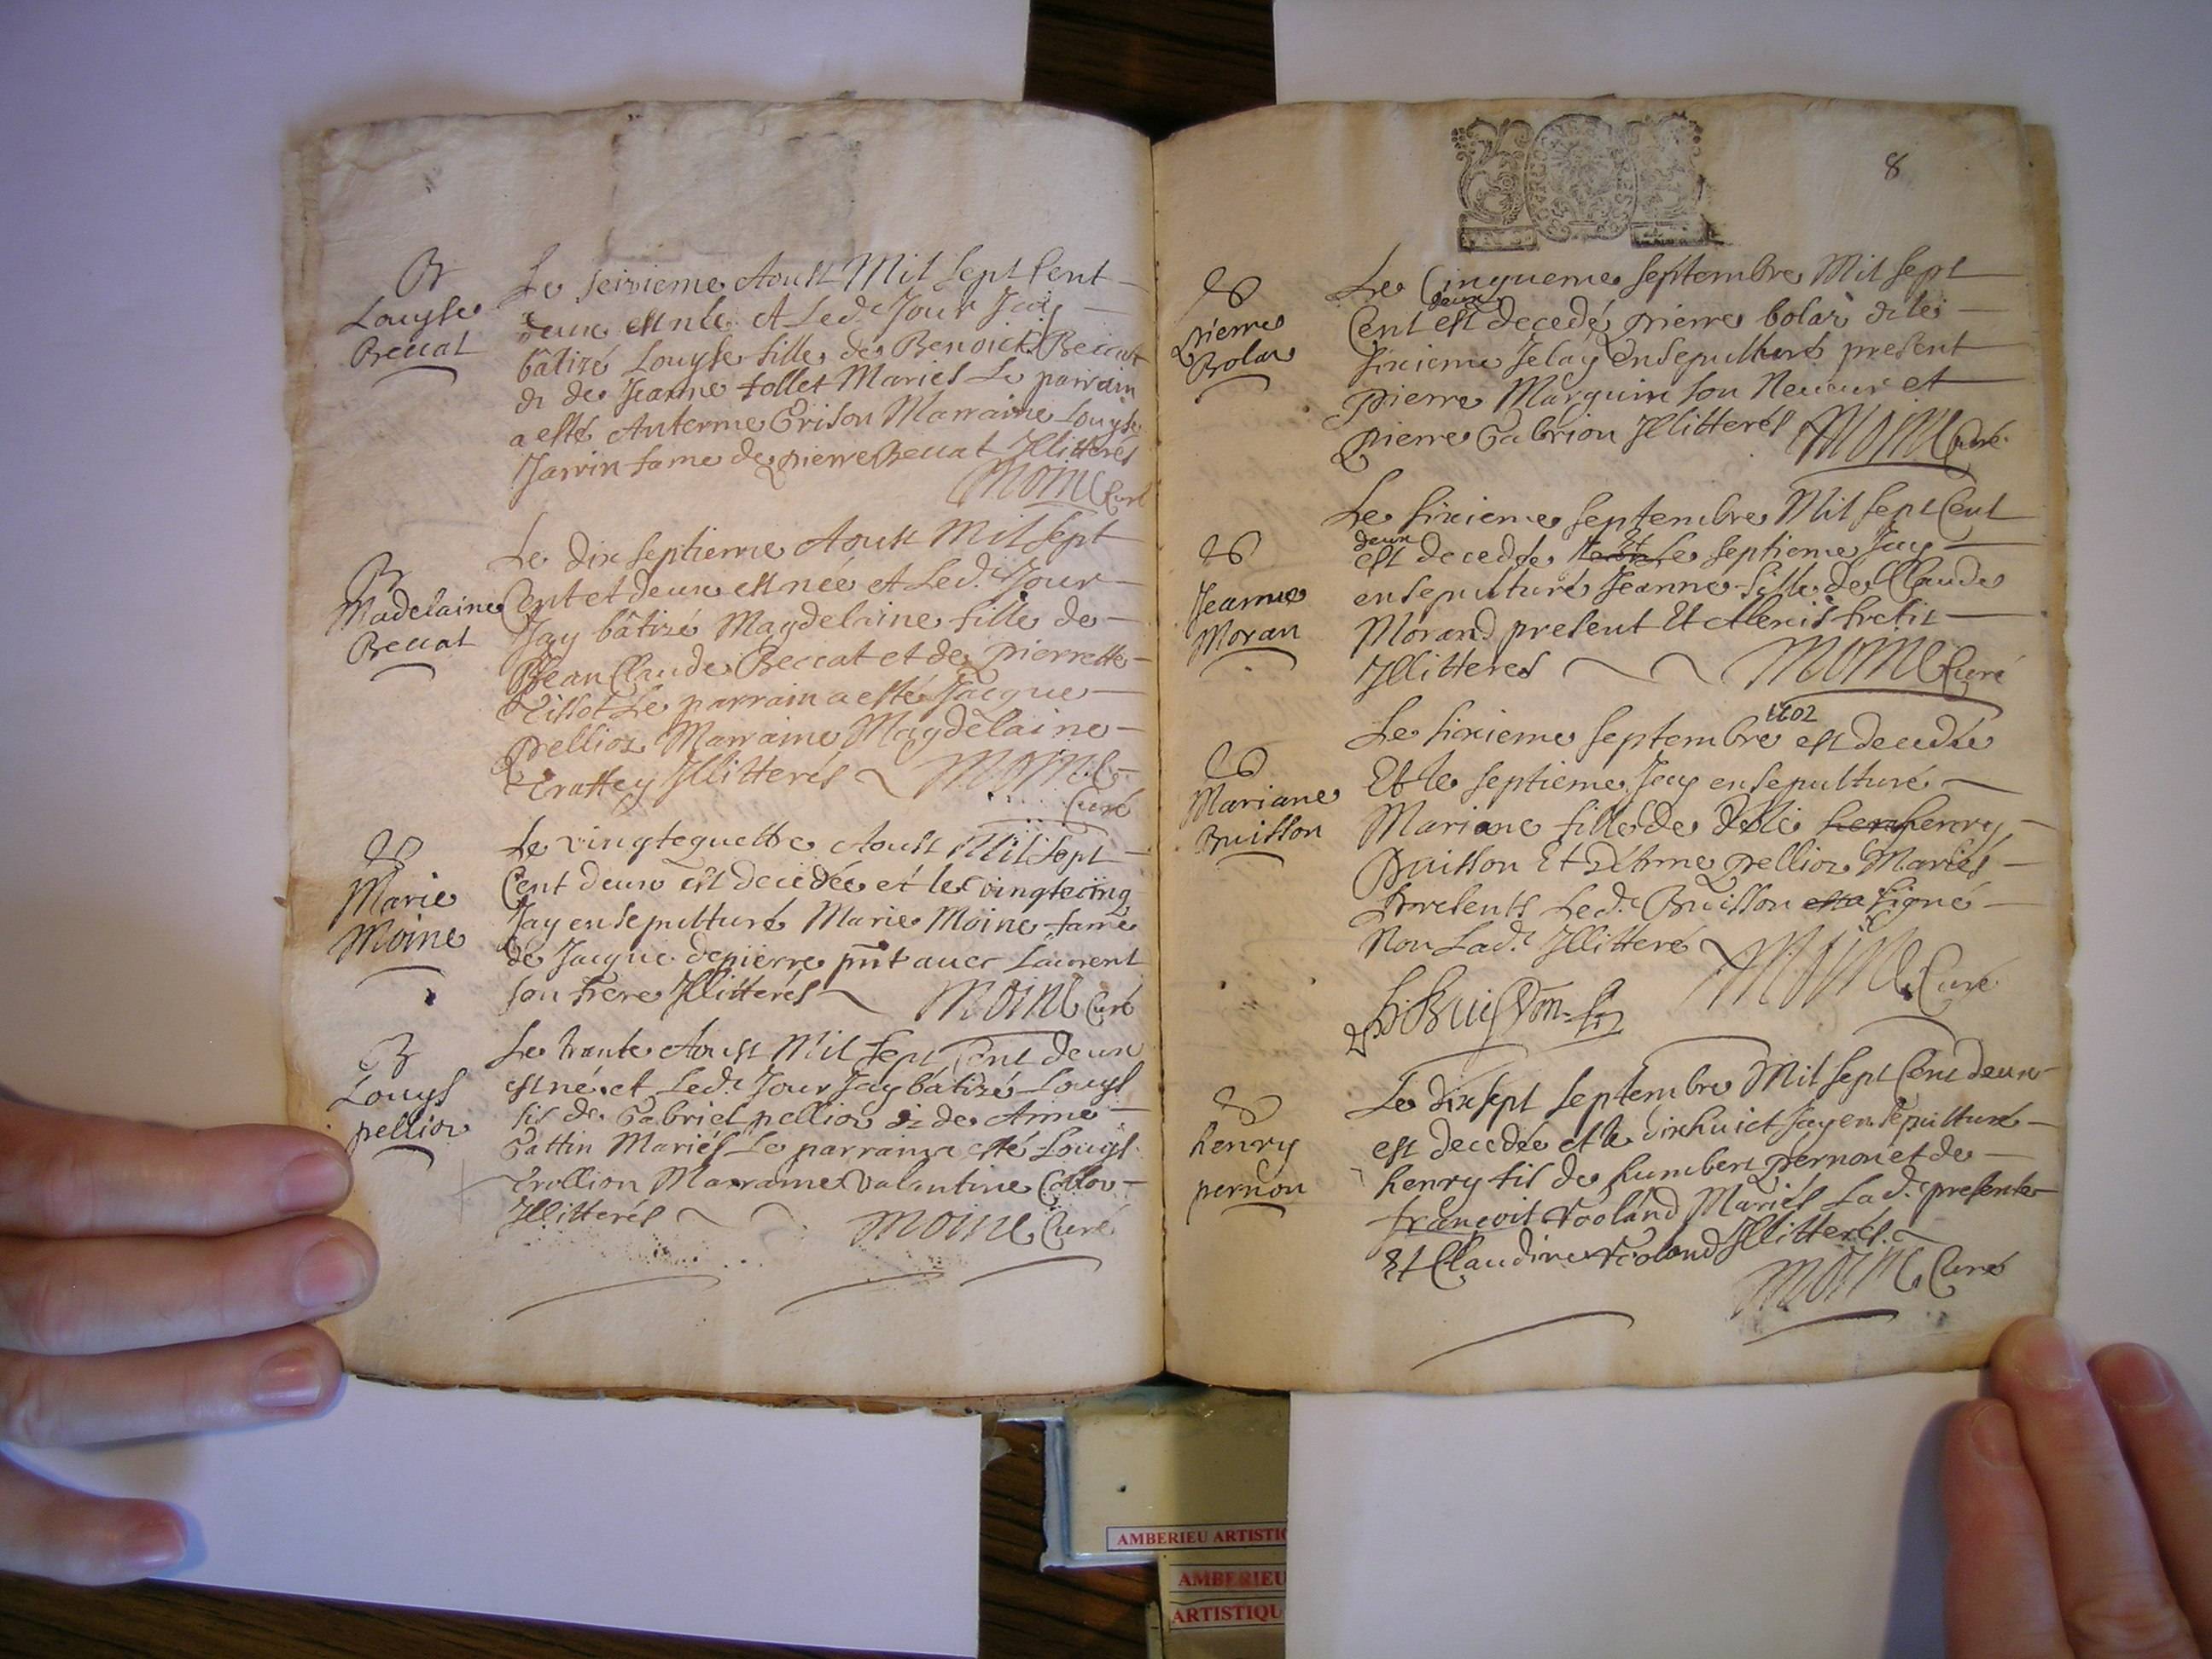 B
Louyse
Beccat
Le seizieme Aoust Mil sept Cent
deux est née et Led.t Jour Jay
bâtizé Louyse fille de Benoict Beccat
& de Jeanne follet Mariés Le parrain
a esté Anterme Grison Marraine Louyse
Jarrin fame de pierre Beccat Illitterés
Moine Curé
B
Madelaine
Beccat
Le dix septieme Aoust Mil sept
Cent et deux est née et Led.t Jour
Jay bâtizé Magdelaine fille de
Jean Claude Beccat et de pierrette
Tissot Le parrain a esté Jacque
pellioz Marraine Magdelaine
Illitterés Moine
Curé
Marie
Moine
Le vingtequattre Aoust Mil sept
Cent deux est decedée et le vingtecinq
Jay ensepulturé Marie Moine fame
de Jacque depierre pnt avec Laurent
son frere Illitterés Moine Curé
B
Louys
pellioz
Le trante Aoust Mil sept Cent deux
est né et Led.t Jour Jay bâtizé Louys
fils de Gabriel pellioz & de Anne
Gattin Mariés Le parrain a esté Louys
Trollion Marraine Valantine
Illitterés Moine Curé
8
pierre
Bolar
Le Cinquieme septembre Mil sept
deux
Cent est decedé pierre bolar & le
sixieme Je lay ensepulturé present
pierre Marguin son Neveur et
pierre Gabrion Illitterés Moine Curé
Jeanne
Moran
Le sixieme septembre Mil sept Cent
deux
est decedée Et Le septieme Jay
ensepulturé Jeanne fille de Claude
Morand present Et Alexis fretit
Illitteres Moine Curé
Mariane
Buisson
1702
Le sixieme septembre est decedée
Et le septieme Jay ensepulturé
Mariane fille de henry
Buisson Et d'Anne pellioz Mariés
presents Led.t Buisson signé
Non Lad.te Illitteré
Moine Curé
H. Buisson
henry
pernon
Le dix sept septembre Mil sept Cent deux
est decedée et le dixhuict Jay ensepulturé
henry fils de humbert pernon et de
francoise Mariés Lad.te presente
Et Claudine Illitterés
Moine Curé
AMBERIEU ARTISTIQ
AMBERIEU
ARTISTIQU